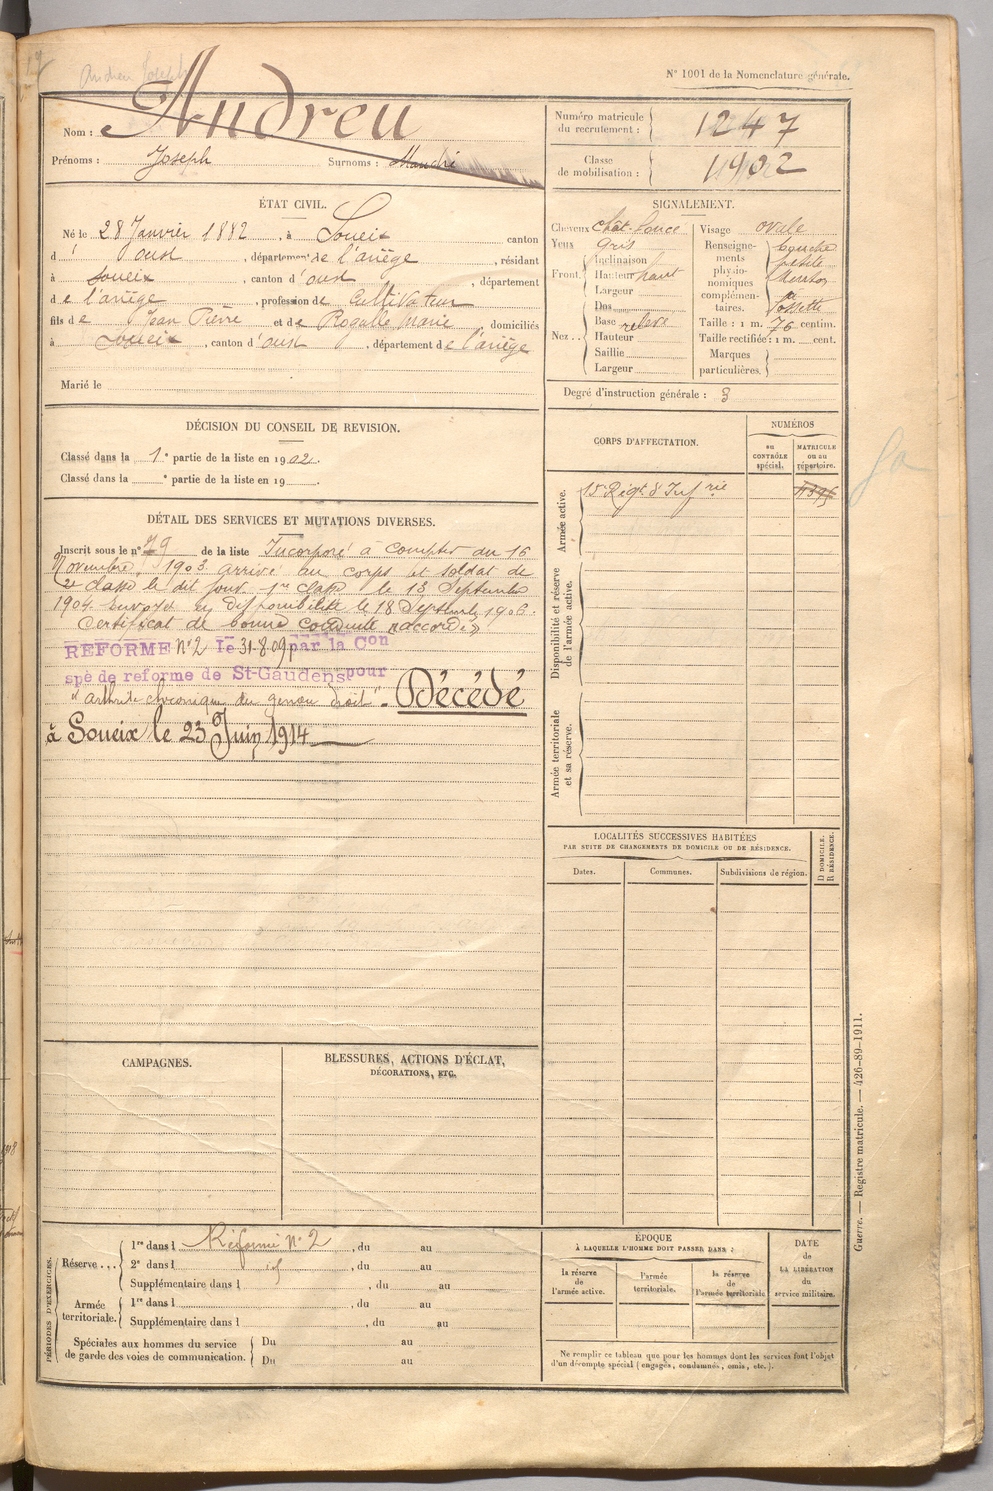 Andreu Joseph
N° 1001 de la Nomenclature générale.
Nom : Andreu
Prénoms : Joseph Surnoms : Mandré
Numéro matricule du recrutement : 1247
Classe de mobilisation : 1902
ÉTAT CIVIL.
Né le 28 Janvier 1882, à Soueix canton
d' Oust, département de l'ariège, résidant
à Soueix, canton d'oust, département
de l'ariège, profession de Cultivateur
fils de Jean Pierre et de Rogalle Marie domiciliés
à Soueix, canton d'oust, département de l'ariège
Marié le
SIGNALEMENT.
Cheveux chat. foncé
Yeux gris
Front. Inclinaison
Hauteur haut
Largeur
Nez .. Dos
Base relevé
Hauteur
Saillie
Largeur
Visage ovale
Renseignements physionomiques complémentaires. bouche petite Menton à fossette
Taille : 1 m. 76 centim.
Taille rectifiée : 1 m. cent.
Marques particulières.
Degré d'instruction générale : 3
DÉCISION DU CONSEIL DE REVISION.
Classé dans la 1e partie de la liste en 1902.
Classé dans la e partie de la liste en 19
CORPS D'AFFECTATION.
NUMÉROS
au CONTRÔLE spécial.
MATRICULE ou au répertoire.
Armée active.
15e Régt d'Infrie
Disponibilité et réserve de l'armée active.
Armée territoriale et sa réserve.
DÉTAIL DES SERVICES ET MUTATIONS DIVERSES.
Inscrit sous le n° 79 de la liste Incorporé à compter du 16
Novembre 1903 arrivé au corps et soldat de
2e classe le dit jour. 1re classe le 13 Septembre
1904. envoyé en disponibilité le 18 Septembre 1906.
Certificat de bonne conduite "accordé"
REFORME N°2 le 31-8-09 par la Con
spé de reforme de St-Gaudens pour
"arthrite chronique du genou droit". Décédé
à Soueix le 23 Juin 1914
LOCALITÉS SUCCESSIVES HABITÉES
PAR SUITE DE CHANGEMENTS DE DOMICILE OU DE RÉSIDENCE.
Dates.
Communes.
Subdivisions de région.
D DOMICILE.
R RÉSIDENCE.
CAMPAGNES.
BLESSURES, ACTIONS D'ÉCLAT,
DÉCORATIONS, ETC.
PÉRIODES D'EXERCICES.
Réserve ... 1re dans l Réformé N° 2, du au
2e dans l id, du au
Supplémentaire dans l, du au
Armée territoriale. 1re dans l, du au
Supplémentaire dans l, du au
Spéciales aux hommes du service
de garde des voies de communication. Du au
Du au
ÉPOQUE
À LAQUELLE L'HOMME DOIT PASSER DANS :
la réserve de l'armée active.
l'armée territoriale.
la réserve de l'armée territoriale
DATE de LA LIBÉRATION du service militaire.
Ne remplir ce tableau que pour les hommes dont les services font l'objet
d'un décompte spécial (engagés, condamnés, omis, etc.).
Guerre. — Registre matricule. — 426-89-1911.